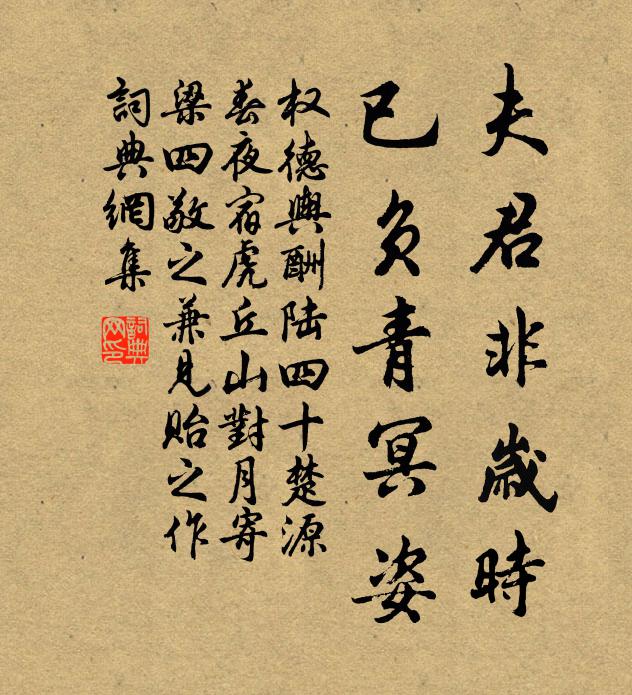 夫君非歲時
已負青冥姿
权德輿酬陆四十楚源
春夜宿虎丘山對月寄
梁四敬之兼見貽之作
詞典網集
詞典网印